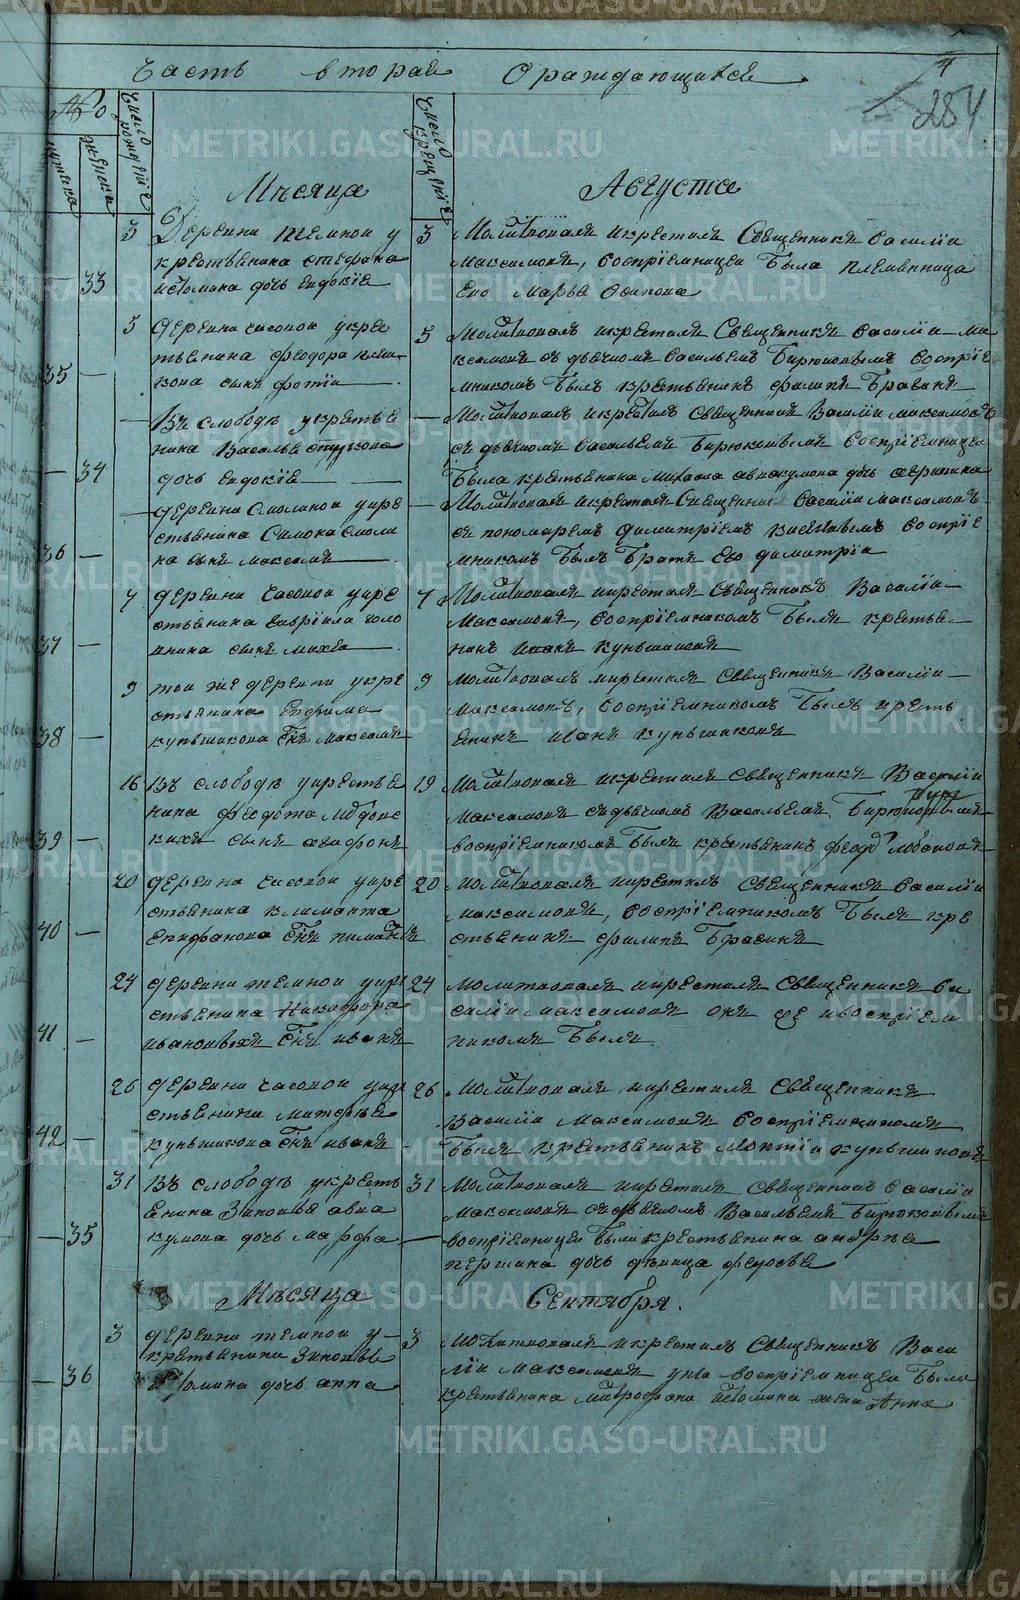 Часть вторая О раждающихся
4
284
№
мужеска
женска
Число рождениѣ
Число крещениѣ
Мѣсяца Августа
33
3
Деревни темной у
крестьянина стефана
истомина дочь евдокіѣ
3
Молитвовалъ икрестилъ Священникъ василіи
максимовъ, воспріемницеи была племянница
Его Марья Осипова
35 —
5
деревни часовои укрес
тьянина феодора
сынъ фотіи
5
Молитвовалъ икрестилъ Священникъ василіи ма
ксимовъ съ дьячкомъ васильемъ Бирюковымъ воспріе
мникомъ былъ крестьянинъ филипъ
— 34
—
Въ слободѣ укрестья
нина Василья
дочь евдокіѣ
—
Молитвовалъ икрестилъ Священникъ Василіи максимовъ
съ дьячкомъ васильемъ Бирюковымъ воспріемницеи
была крестьянина михаила авакумова дочь
36 —
—
деревни Смолинои укре
стьянина Смоли
на сынъ максимъ
—
Молитвовалъ икрестилъ Священникъ василіи максимовъ
съ пономаремъ димитріемъ воспріе
мникомъ былъ братъ Его димитріи
37 —
7
деревни часовои укре
стьянина гавріила голо
внина сынъ михеи
7
Молитвовалъ икрестилъ Священникъ Василіи
Максимовъ, воспріемникомъ былъ крестья
нинъ иванъ куньшиковъ
38 —
9
тои же деревни укре
стьянина Ефрема
куньшикова Снъ максимъ
9
молитвовалъ икрестилъ Священникъ Василіи
максимовъ, воспріемникомъ былъ кресть
янинъ иванъ куньшиковъ
39 —
16
Въ слободѣ укрестья
нина феодота
кихъ сынъ агафонъ
19
Молитвовалъ икрестилъ Священникъ Василіи
максимовъ съдьячкомъ Васильемъ Бирюковымъ
воспріемникомъ былъ крестьянинъ
40 —
20
деревни часовои укре
стьянина климанта
епифанова Снъ
20
молитвовалъ икрестилъ Священникъ василіи
максимовъ, воспріемникомъ былъ кре
стьянинъ филипъ
41 —
24
деревни темнои укре
стьянина никифора
ивановыхъ Снъ иванъ
24
молитвовалъ икрестилъ Священникъ ва
силіи максимовъ онъ же ивоспріем
никомъ былъ
42 —
26
деревни часовои укре
стьянина матфѣя
куньшикова Снъ иванъ
26
молитвовалъ икрестилъ Священникъ
Василіи Максимовъ воспріемникомъ
былъ крестьянинъ куньшиковъ
— 35
31
Въ слободѣ укресть
янина Зиновья авва
кумова дочь марфа
31
Молитвовалъ икрестилъ Священникъ василіи
максимовъ съдьячкомъ Васильемъ Бирюковымъ
воспріемницеи была крестьянина андрѣя
першина дочь дѣвица федосья
Мѣсяца Сентября.
— 36
3
деревни темнои у
крестьянина Зиновья
истомина дочь анна
3
молитвовалъ икрестилъ Священникъ Васи
ліи максимовъ воспріемницеи была
крестьянина митрофана истомина жена Анна
METRIKI.GASO-URAL.RU